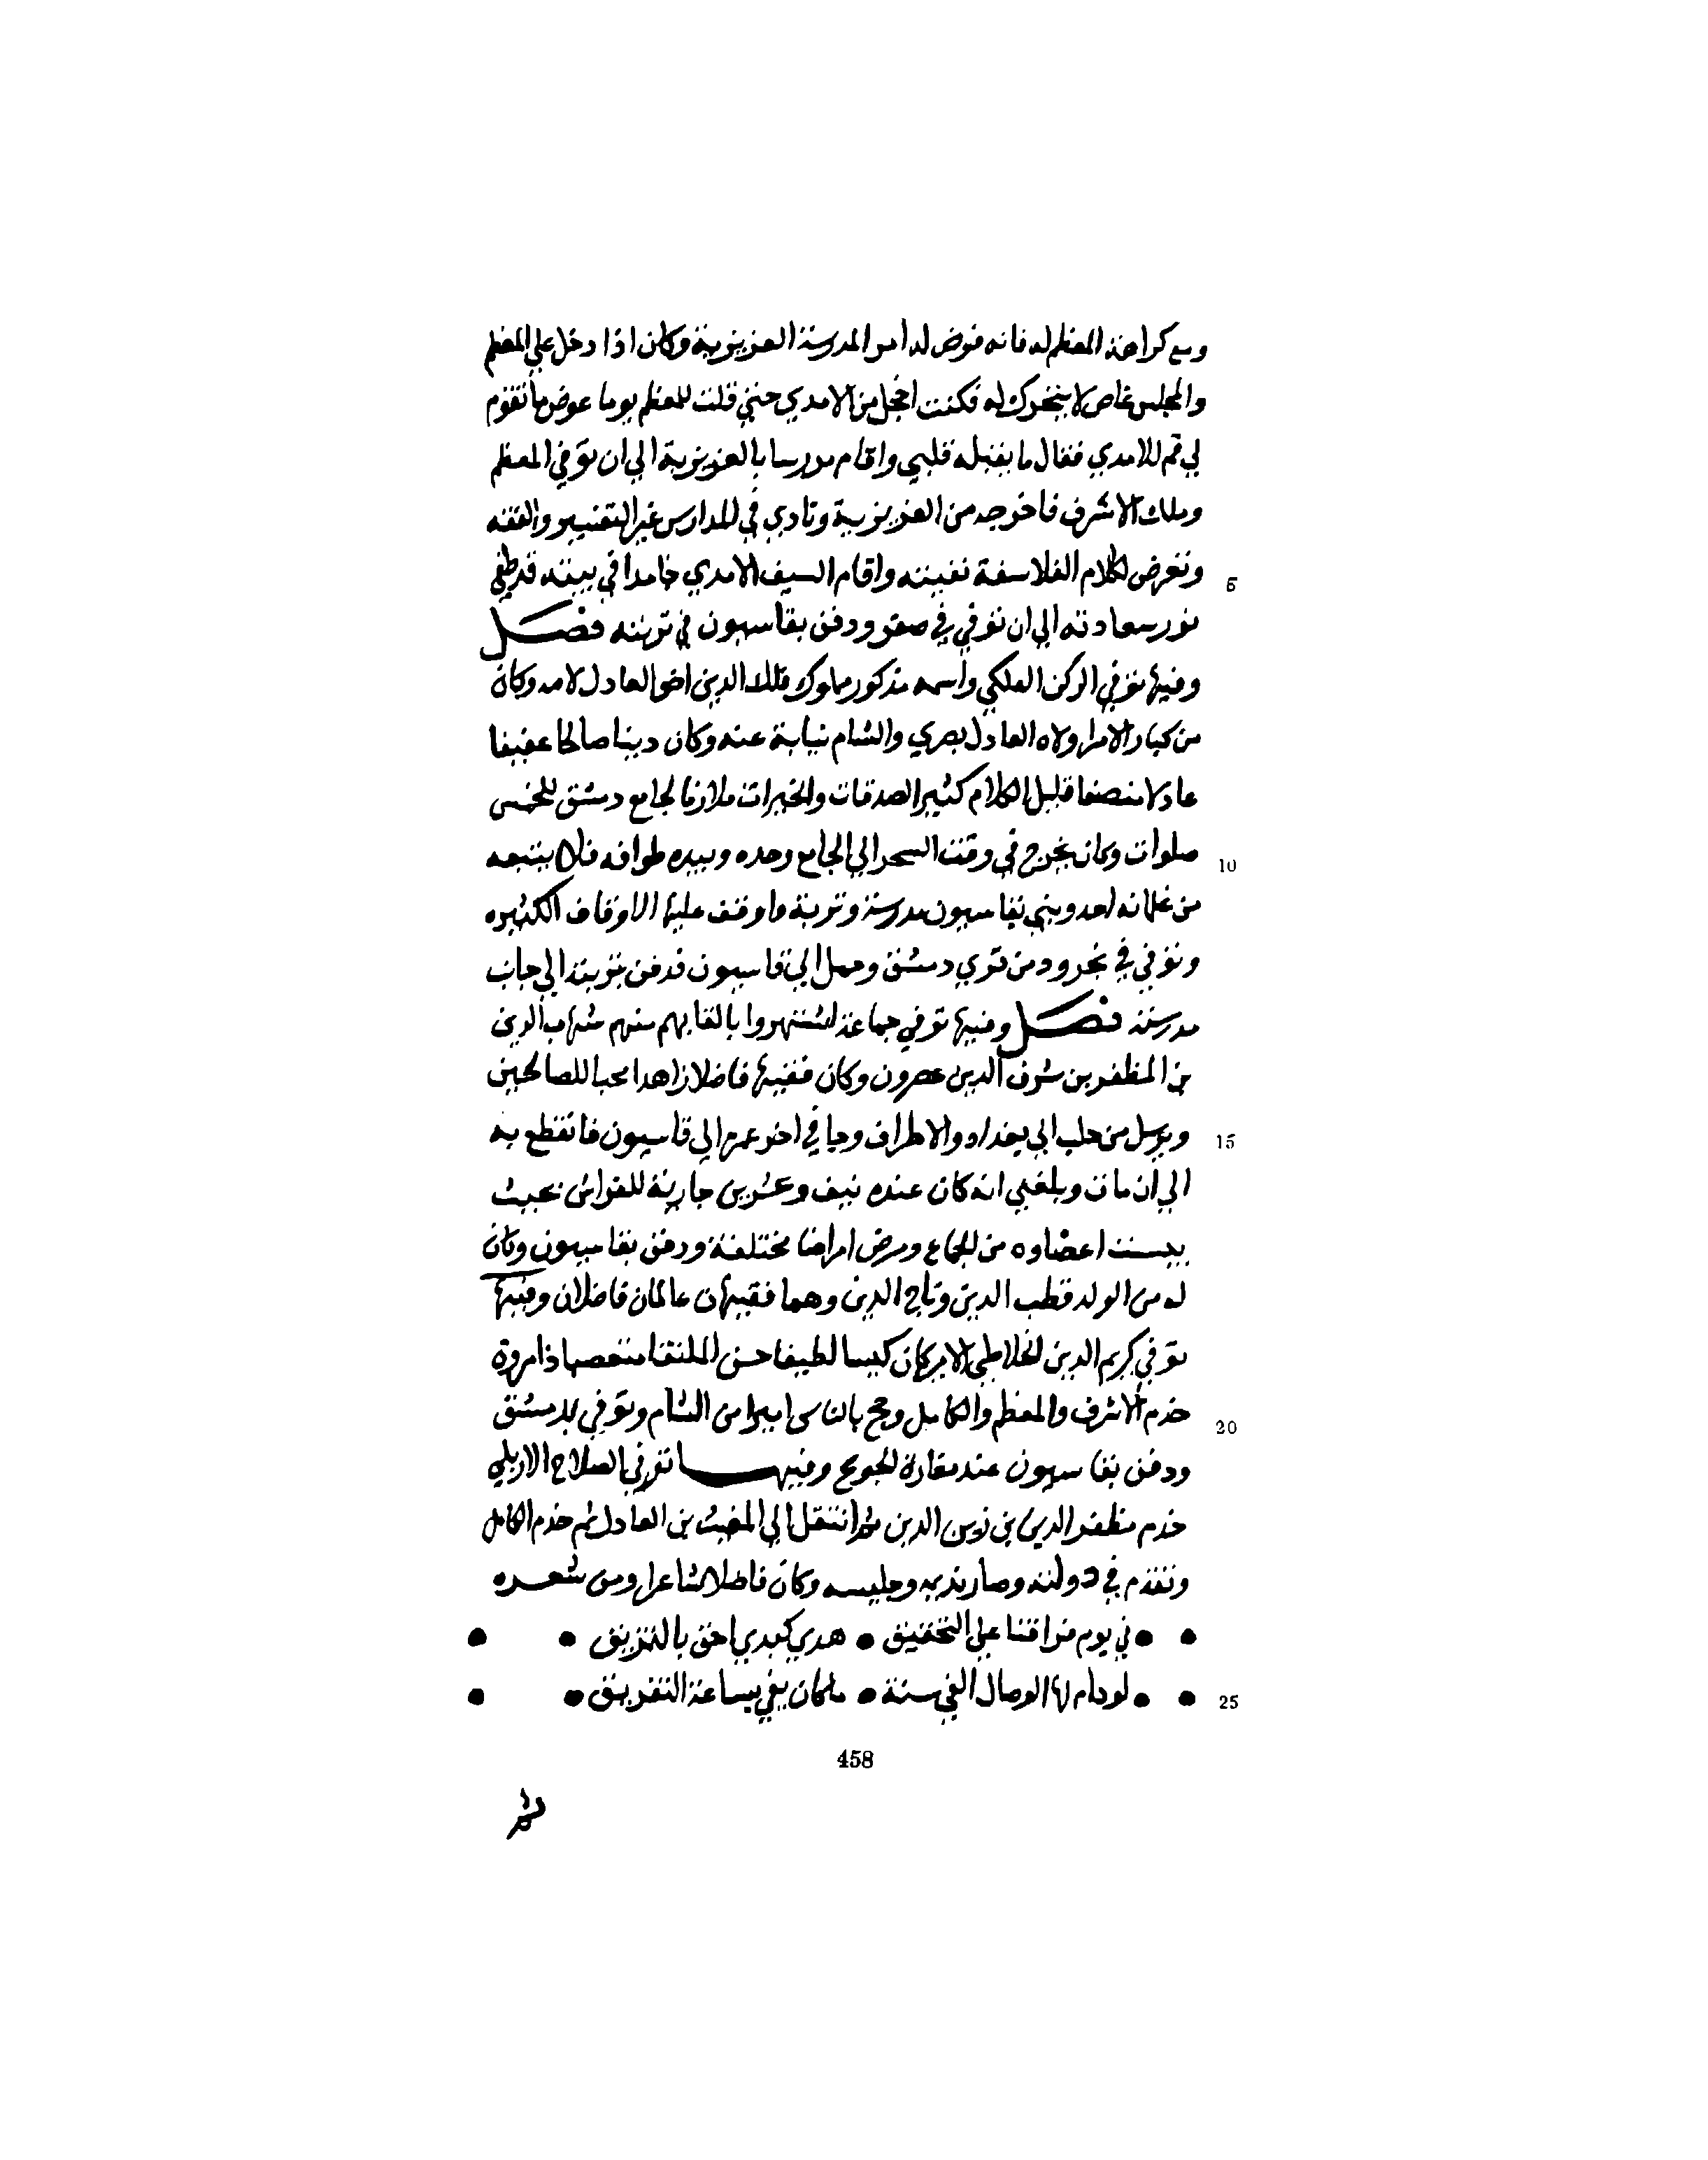 ومع كراهة المعظم له فانه فوض له امر المدرسة العزيزية وكان اذا دخل علي المعظم
والمجلس غاص لا يتحرك له فكنت اخجل من الامدي حتي قلت للمعظم يوما عوض ما تقوم
لي قم للامدي فقال ما يقبله قلبي واقام مدرسا بالعزيزية الي ان توفي المعظم
وملك الاشرف فاخرجه من العزيزية ونادي في المدارس غير التفسير والفقه
وتعرض لكلام الفلاسفة نفيته واقام السيف الامدي خامدا في بيته قد طفي
5
نور سعادته الي ان توفي في صفر ودفن بقاسيون في تربته فصل
وفيها توفي الركن الفلكي واسمه منكور مملوك فلك الدين اخو العادل لامه وكان
من كبار الامرا ولاه العادل بصري والشام نيابة عنه وكان دينا صالحا عفيفا
عادلا منصفا قليل الكلام كثير الصدقات والخيرات ملازما لجامع دمشق للخمس
صلوات وكان يخرج في وقت السحر الي الجامع وحده وبيده طوافه فلا يتبعه
10
من غلمانه احد وبني بقاسيون مدرسة وتربة واوقف عليها الاوقاف الكثيره
وتوفي في بجرود من قري دمشق وحمل الي قاسيون فدفن بتربته الي جانب
مدرسته فصل وفيها توفي جماعة اشتهروا بالقابهم منهم شهاب الدين
بن المظفر بن شرف الدين عصرون وكان فقيها فاضلا زاهدا محبا للصالحين
ويرسل من حلب الي بغداد والاطراف وجا في اخر عمره الي قاسيون فانقطع به
15
الي ان مات وبلغني انه كان عنده نيف وعشرين جارية للفراش بحيث
يبست اعضاوه من الجماع ومرض امراضا مختلفة ودفن بقاسيون وكان
له من الولد قطب الدين وتاج الدين وهما فقيهان عالمان فاضلان وفيها
توفي كريم الدين الخلاطي الامير كان كيسا لطيفا حسن الملتقا متعصبا ذا مروة
خدم الاشرف والمعظم والكامل وحج بالناس اميرا من الشام وتوفي بدمشق
20
ودفن بقاسيون عند مغارة الجوع وفيها توفي الصلاح الاربلي
خدم مظفر الدين بن زين الدين ثم انتقل الي المغيث بن العادل ثم خدم الكامل
وتقدم في دولته وصار نديمه وجليسه وكان فاضلا شاعرا ومن شعره
في يوم فراقنا علي التحقيق • هدي كبدي احق بالتمزيق
لو دام لنا الوصال الفي سنة • ما كان يفي بساعة التفريق
25
458